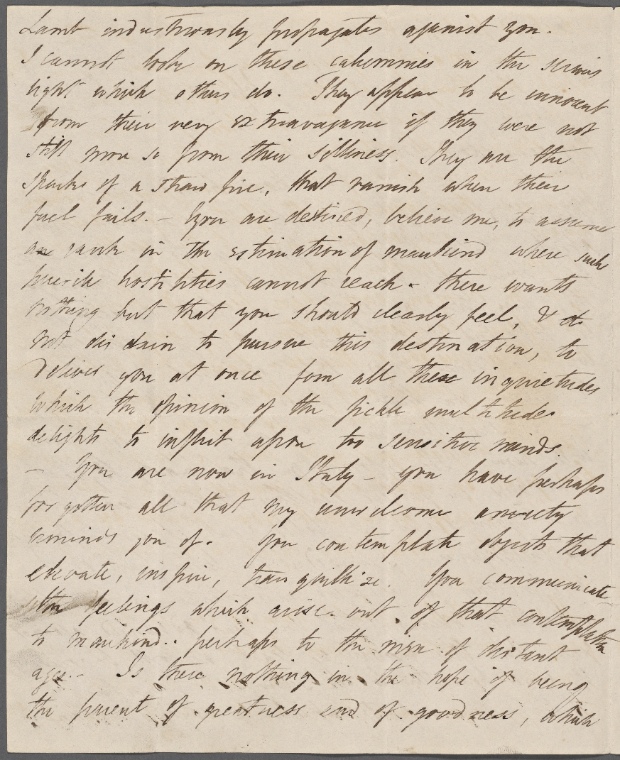 Lamb industriously propagates against you.
I cannot look on these calumnies in the serious
light which others do. They appear to be innocent
from their very extravagance if they were not
still more so from their silliness. They are the
sparks of a straw fire, that vanish when their
fuel fails. – You are destined, believe me, to assume
a rank in the estimation of mankind where such
puerile hostilities cannot reach. there wants
nothing but that you should clearly feel, & do
not disdain to pursue this destination, to
deliver you at once from all these inquietudes
which the opinion of the fickle multitude
delights to inflict upon too sensitive minds.
– You are now in Italy – you have perhaps
forgotten all that my unwelcome anxiety
reminds you of. You contemplate objects that
elevate, inspire, tranquillize. You communicate
the feelings which arise out of that contemplation
to mankind. perhaps to the men of distant
ages. Is there nothing in the hope of being
the parent of greatness and of goodness, which